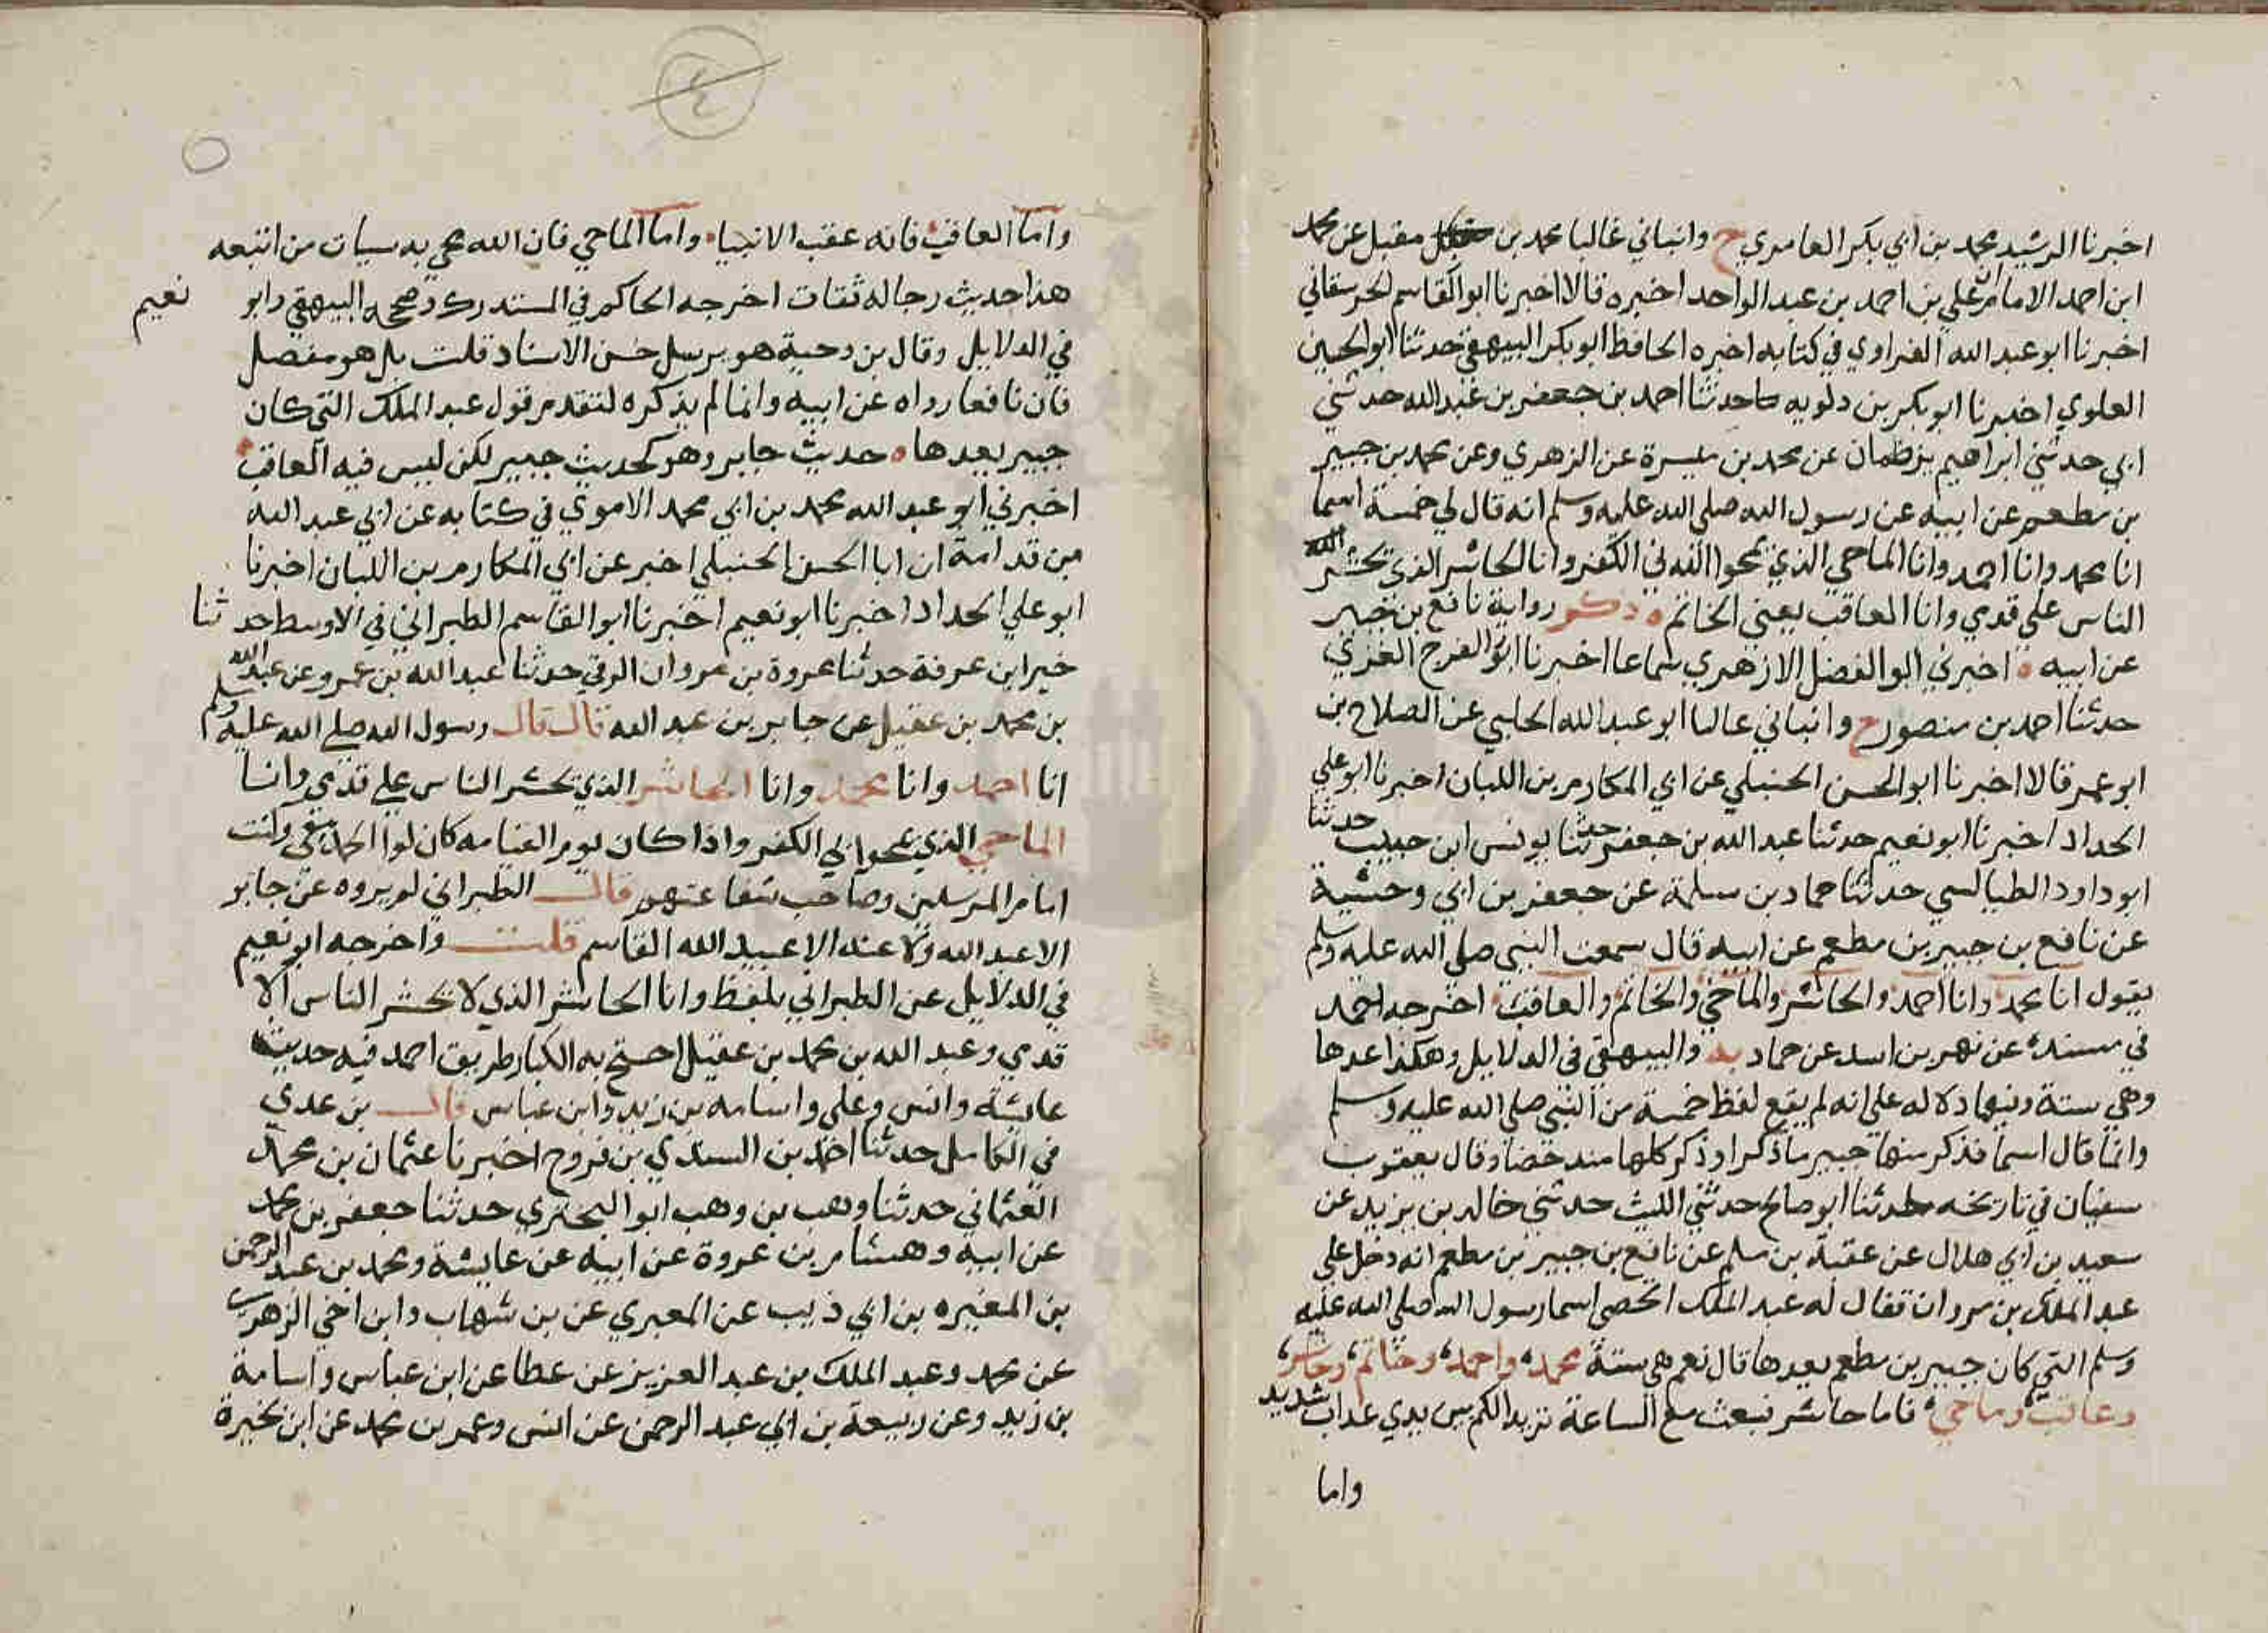 اخبرنا الرشيد محمد بن ابي بكر العامري ح وانباني غاليا محمد بن مقبل عن محمد
ابن احمد الامام علي بن احمد بن عبد الواحد اخبره قالا اخبرنا ابو القاسم الحرستاني
اخبرنا ابو عبد الله الفراوي في كتابه اخبره الحافظ ابو بكر البيهقي حدثنا ابو الحسين
العلوي اخبرنا ابو بكر بن دلويه حدثنا احمد بن جعفر بن عبد الله حدثني
ابي حدثني ابراهيم بن طهمان عن محمد بن ميسرة عن الزهري وعن محمد بن جبير
بن مطعم عن ابيه عن رسول الله صلى الله عليه وسلم انه قال لي خمسة اسما
انا محمد وانا احمد وانا الماحي الذي يمحوا الله لي الكفر وانا الحاشر الذي يحشر الله
الناس على قدمي وانا العاقب يعني الخاتم ه ذكر رواية نافع بن جبير
عن ابيه ه اخبرني ابو الفضل الازهري سماعا اخبرنا ابو الفرج الغزي
حدثنا احمد بن منصور ح وانباني عاليا ابو عبد الله الحلبي عن الصلاح بن
ابو عمر قالا اخبرنا ابو الحسن الحنبلي عن ابي المكارم بن اللبان اخبرنا ابو علي
الحداد اخبرنا ابو نعيم حدثنا عبد الله بن جعفر حدثنا يونس ابن حبيب حدثنا
ابو داود الطيالسي حدثنا حماد بن سلمة عن جعفر بن ابي وحشية
عن نافع بن جبير بن مطعم عن ابيه قال سمعت النبي صلى الله عليه وسلم
يقول انا محمد وانا احمد والحاشر والماحي والخاتم والعاقب اخرجه احمد
في مسنده عن نهر بن اسد عن حماد به والبيهقي في الدلايل وهكذا عدها
وهي ستة وفيها دلاله على انه لم يقع لفظ خمسة من النبي صلى الله عليه وسلم
وانما قال اسما فذكر منها جبير ما ذكر او ذكر كلها وقال يعقوب
سفيان في تاريخه حدثنا ابو صالح حدثني الليث حدثني خالد بن يزيد عن
سعيد بن ابي هلال عن عقبة بن سلم عن نافع بن جبير بن مطعم انه دخل على
عبد الملك بن مروان فقال له عبد الملك اتحصى اسما رسول الله صلى الله عليه
وسلم التي كان جبير بن مطعم يعدها قال نعم هي ستة محمد، واحمد، وخاتم، وحاشر،
وعاقب، وماحي، فاما حاشر فبعث مع الساعة نزيرا لكم بين يدي عذاب شديد
واما
واما العاقب فانه عقب الانبيا، واما الماحي فان الله محي به سيات من اتبعه
هذا حديث رجاله ثقات اخرجه الحاكم في المستدرك وصححه البيهقي وابو نعيم
في الدلايل وقال بن دحية هو مرسل حسن الاسناد قلت بل هو متصل
فان نافعا رواه عن ابيه وانما لم يذكره لتقدم قول عبد الملك التي كان
جبير يعدها ه حديث جابر وهو كحديث جبير لكن ليس فيه العاقب
اخبرني ابو عبد الله محمد بن ابي محمد الاموي في كتابه عن ابي عبد الله
بن قدامة ان ابا الحسن الحنبلي اخبر عن ابي المكارم بن اللبان اخبرنا
ابو علي الحداد اخبرنا ابو نعيم اخبرنا ابو القاسم الطبراني في الاوسط حدثنا
خير ابن عرفة حدثنا عروة بن مروان الرقي حدثنا عبد الله بن عمرو عن عبد الله
بن محمد بن عقيل عن جابر بن عبد الله قال قال رسول الله صلى الله عليه وسلم
انا احمد وانا محمد وانا الحاشر الذي يحشر الناس على قدمي وانا
الماحي الذي يمحوا بي الكفر واذا كان يوم القيامه كان لوا الحمد معي وكنت
امام المرسلين وصاحب شفاعتهم قال الطبراني لم يروه عن جابر
الا عبد الله ولا عنه الا عبيد الله القاسم قلت واخرجه ابو نعيم
في الدلايل عن الطبراني بلفظ وانا الحاشر الذي لا يحشر الناس الا
قدمي وعبد الله بن محمد بن عقيل احتج به الكبار طريق احمد فيه حديث
عايشة وانس وعلي واسامه بن زيد وابن عباس قال بن عدي
في الكامل حدثنا احمد بن السندي بن فروح اخبرنا عثمان بن محمد
العثماني حدثنا وهب بن وهب ابو البحتري حدثنا جعفر بن محمد
عن ابيه وهشام بن عروة عن ابيه عن عايشة ومحمد بن عبد الرحمن
بن المغيره بن ابي ذيب عن المعبري عن بن شهاب وابن اخي الزهري
عن محمد وعبد الملك بن عبد العزيز عن عطا عن ابن عباس واسامة
بن زيد وعن ربيعة بن ابي عبد الرحمن عن انس وعمر بن محمد عن ابن بحيرة